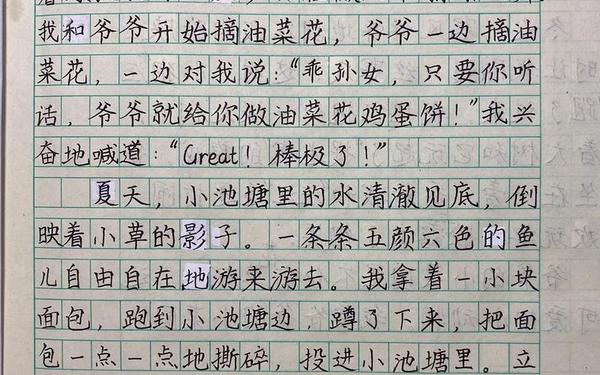 我和爷爷开始摘油菜花，爷爷一边摘油
菜花，一边对我说：“乖孙女，只要你听
话，爷爷就给你做油菜花鸡蛋饼！”我兴
奋地喊道：“Great！棒极了！”
夏天，小池塘里的水清澈见底，倒
映着小草的影子。一条条五颜六色的鱼
儿自由自在地游来游去。我拿着一小块
面包，跑到小池塘边，蹲了下来，把面
包一点一点地撕碎，投进小池塘里。立